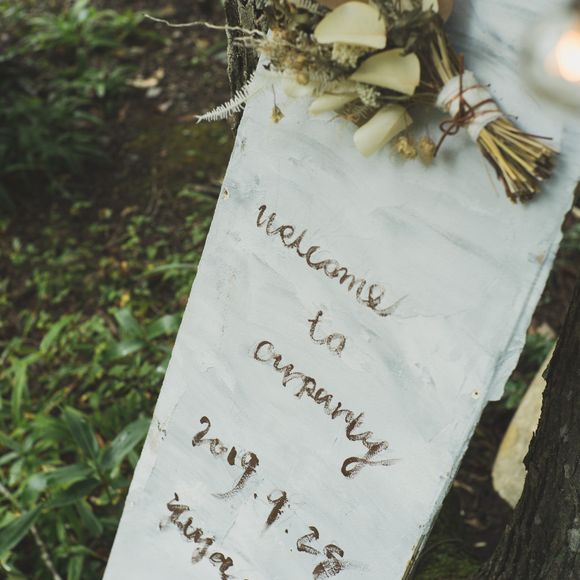 welcome
to
ourparty
2019.9.28